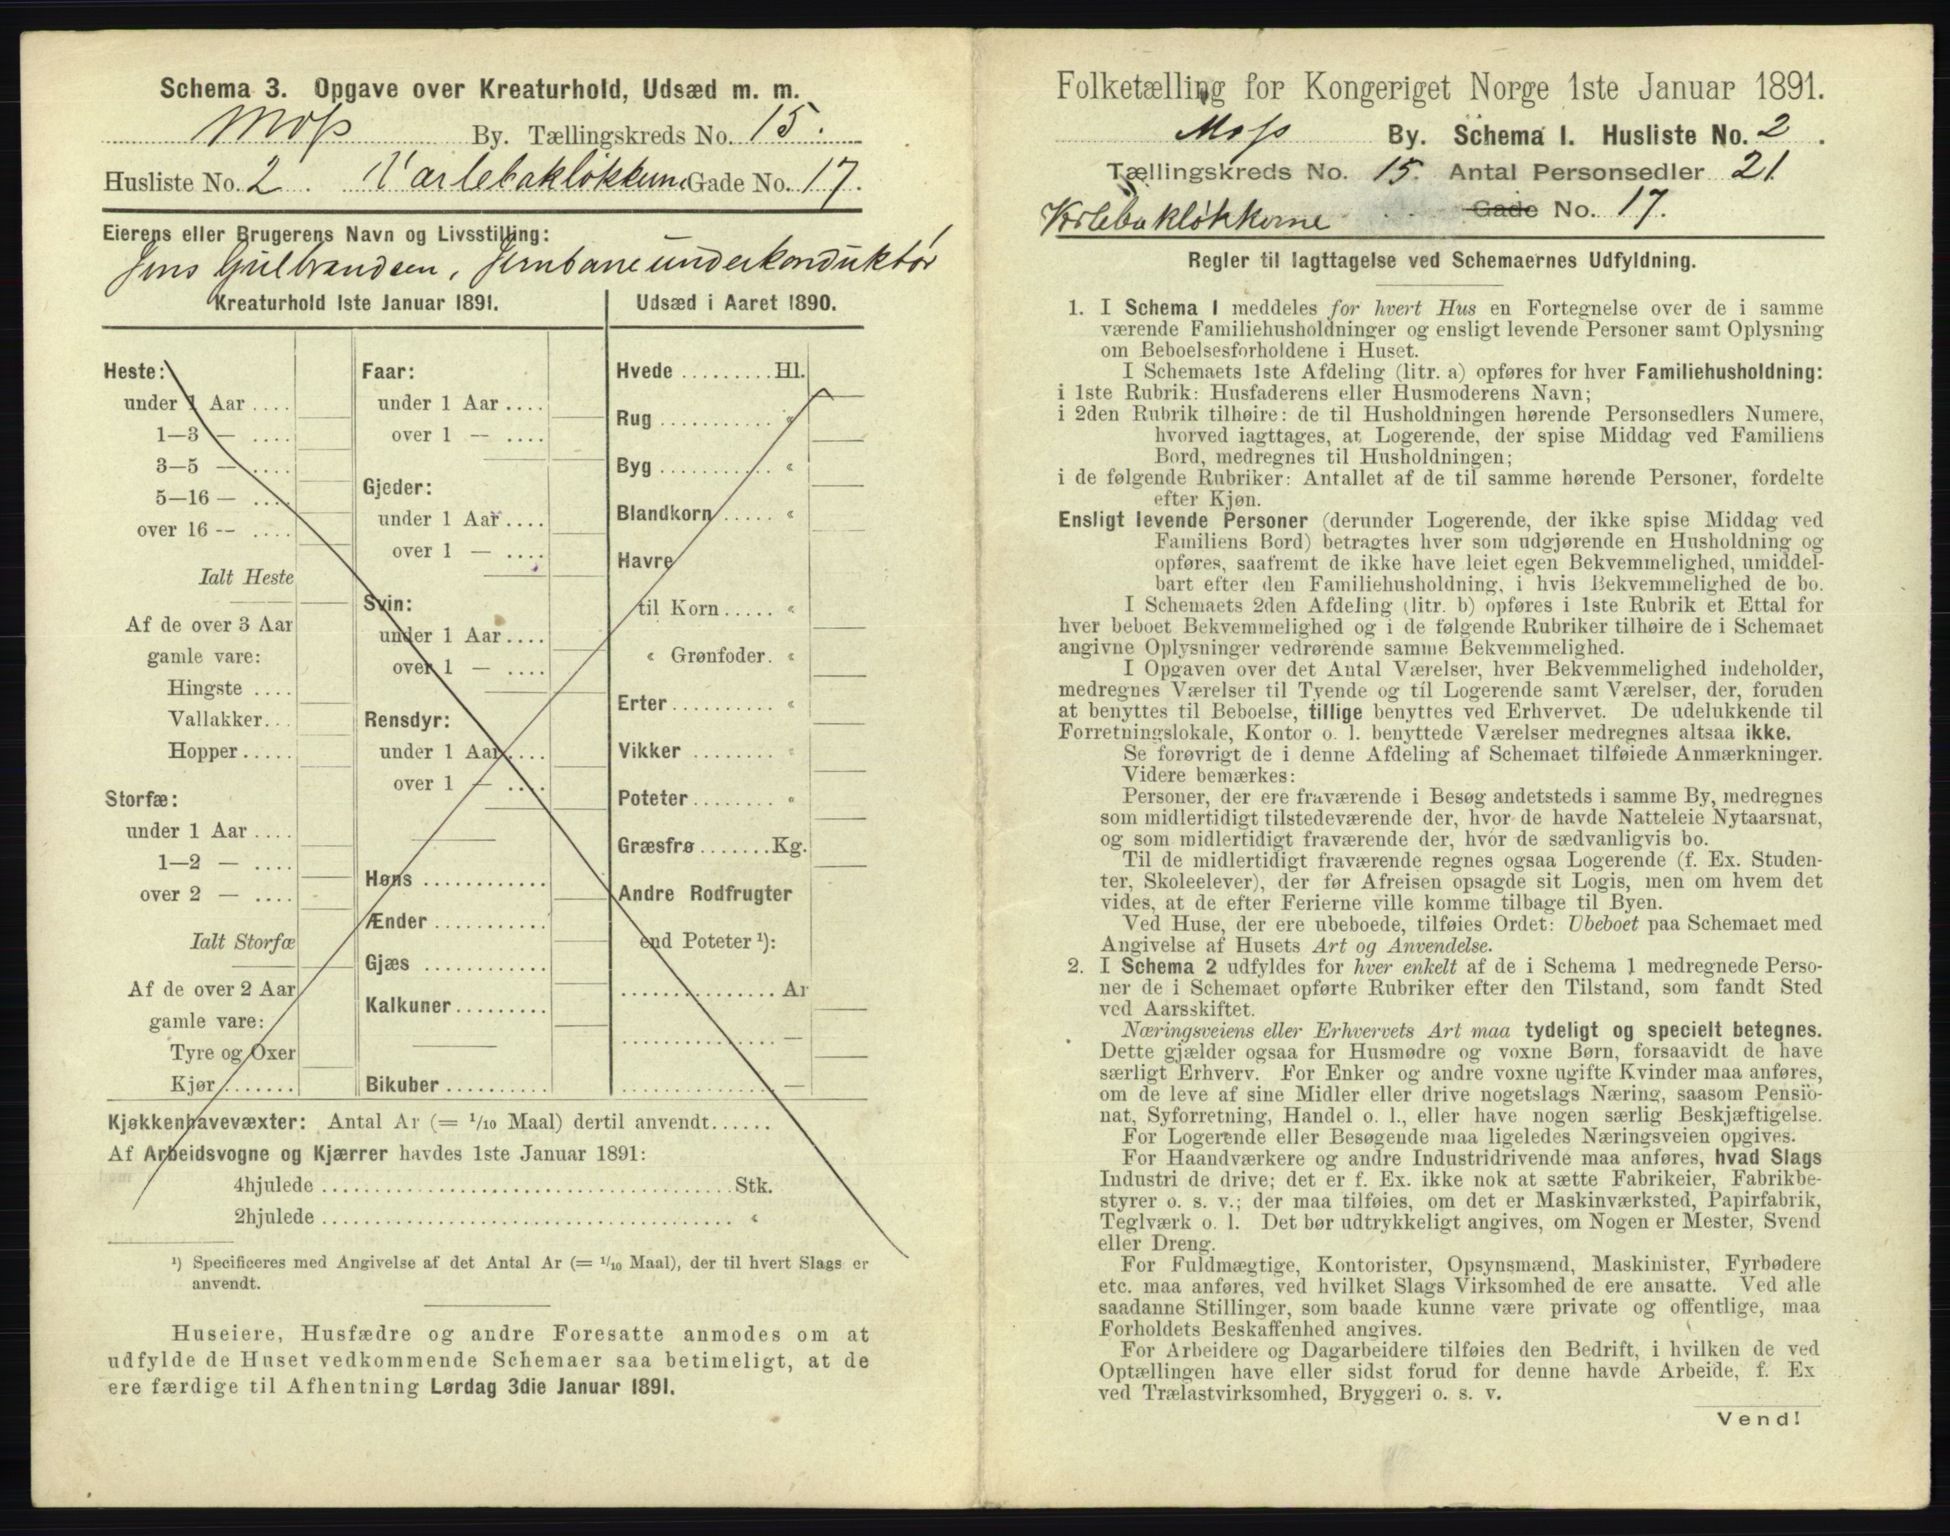 Schema 3. Opgave over Kreaturhold, Udsæd m. m.
Moss By. Tællingskreds No. 15.
Husliste No. 2. Varlebakløkkerne Gade No. 17.
Eierens eller Brugerens Navn og Livsstilling:
Jens Gulbrandsen, Jernbaneunderkonduktör
Kreaturhold 1ste Januar 1891.
Heste:
under 1 Aar ....
1—3 — ....
3—5 — ....
5—16 — ....
over 16 -- ....
Ialt Heste
Af de over 3 Aar
gamle vare:
Hingste ....
Vallakker...
Hopper.....
Storfæ:
under 1 Aar ....
1—2 — ....
over 2 — ....
Ialt Storfæ
Af de over 2 Aar
gamle vare:
Tyre og Oxer
Kjør.......
Faar:
under 1 Aar ....
over 1 — ....
Gjeder:
under 1 Aar ....
over 1 — ....
Svin:
under 1 Aar ....
over 1 — ....
Rensdyr:
under 1 Aar ....
over 1 — ....
Høns ............
Ænder ...........
Gjæs ............
Kalkuner .........
Bikuber ..........
Udsæd i Aaret 1890.
Hvede .........Hl.
Rug ........... «
Byg ........... «
Blandkorn ..... «
Havre
til Korn ..... «
« Grønfoder. «
Erter.......... «
Vikker ........ «
Poteter........ «
Græsfrø .......Kg.
Andre Rodfrugter
end Poteter ¹):
...............Ar
............... —
............... —
Kjøkkenhavevæxter: Antal Ar (= 1/10 Maal) dertil anvendt......
Af Arbeidsvogne og Kjærrer havdes 1ste Januar 1891:
4hjulede ........................................Stk.
2hjulede ........................................ «
¹) Specificeres med Angivelse af det Antal Ar (= 1/10 Maal), der til hvert Slags er
anvendt.
Huseiere, Husfædre og andre Foresatte anmodes om at
udfylde de Huset vedkommende Schemaer saa betimeligt, at de
ere færdige til Afhentning Lørdag 3die Januar 1891.
Folketælling for Kongeriget Norge 1ste Januar 1891.
Moss By. Schema I. Husliste No. 2.
Tællingskreds No. 15. Antal Personsedler 21
Vorlebakløkkerne Gade No. 17.
Regler til Iagttagelse ved Schemaernes Udfyldning.
1. I Schema 1 meddeles for hvert Hus en Fortegnelse over de i samme
værende Familiehusholdninger og ensligt levende Personer samt Oplysning
om Beboelsesforholdene i Huset.
I Schemaets 1ste Afdeling (litr. a) opføres for hver Familiehusholdning:
i 1ste Rubrik: Husfaderens eller Husmoderens Navn;
i 2den Rubrik tilhøire: de til Husholdningen hørende Personsedlers Numere,
hvorved iagttages, at Logerende, der spise Middag ved Familiens
Bord, medregnes til Husholdningen;
i de følgende Rubriker: Antallet af de til samme hørende Personer, fordelte
efter Kjøn.
Ensligt levende Personer (derunder Logerende, der ikke spise Middag ved
Familiens Bord) betragtes hver som udgjørende en Husholdning og
opføres, saafremt de ikke have leiet egen Bekvemmelighed, umiddel-
bart efter den Familiehusholdning, i hvis Bekvemmelighed de bo.
I Schemaets 2den Afdeling (litr. b) opføres i 1ste Rubrik et Ettal for
hver beboet Bekvemmelighed og i de følgende Rubriker tilhøire de i Schemaet
angivne Oplysninger vedrørende samme Bekvemmelighed.
I Opgaven over det Antal Værelser, hver Bekvemmelighed indeholder,
medregnes Værelser til Tyende og til Logerende samt Værelser, der, foruden
at benyttes til Beboelse, tillige benyttes ved Erhvervet. De udelukkende til
Forretningslokale, Kontor o. l. benyttede Værelser medregnes altsaa ikke.
Se forøvrigt de i denne Afdeling af Schemaet tilføiede Anmærkninger.
Videre bemærkes:
Personer, der ere fraværende i Besøg andetsteds i samme By, medregnes
som midlertidigt tilstedeværende der, hvor de havde Natteleie Nytaarsnat,
og som midlertidigt fraværende der, hvor de sædvanligvis bo.
Til de midlertidigt fraværende regnes ogsaa Logerende (f. Ex. Studen-
ter, Skoleelever), der før Afreisen opsagde sit Logis, men om hvem det
vides, at de efter Ferierne ville komme tilbage til Byen.
Ved Huse, der ere ubeboede, tilføies Ordet: Ubeboet paa Schemaet med
Angivelse af Husets Art og Anvendelse.
2. I Schema 2 udfyldes for hver enkelt af de i Schema 1 medregnede Perso-
ner de i Schemaet opførte Rubriker efter den Tilstand, som fandt Sted
ved Aarsskiftet.
Næringsveiens eller Erhvervets Art maa tydeligt og specielt betegnes.
Dette gjælder ogsaa for Husmødre og voxne Børn, forsaavidt de have
særligt Erhverv. For Enker og andre voxne ugifte Kvinder maa anføres,
om de leve af sine Midler eller drive nogetslags Næring, saasom Pensio-
nat, Syforretning, Handel o. l., eller have nogen særlig Beskjæftigelse.
For Logerende eller Besøgende maa ligeledes Næringsveien opgives.
For Haandværkere og andre Industridrivende maa anføres, hvad Slags
Industri de drive; det er f. Ex. ikke nok at sætte Fabrikeier, Fabrikbe-
styrer o. s. v.; der maa tilføies, om det er Maskinværksted, Papirfabrik,
Teglværk o. l. Det bør udtrykkeligt angives, om Nogen er Mester, Svend
eller Dreng.
For Fuldmægtige, Kontorister, Opsynsmænd, Maskinister, Fyrbødere
etc. maa anføres, ved hvilket Slags Virksomhed de ere ansatte. Ved alle
saadanne Stillinger, som baade kunne være private og offentlige, maa
Forholdets Beskaffenhed angives.
For Arbeidere og Dagarbeidere tilføies den Bedrift, i hvilken de ved
Optællingen have eller sidst forud for denne havde Arbeide, f. Ex
ved Trælastvirksomhed, Bryggeri o. s. v.
Vend!